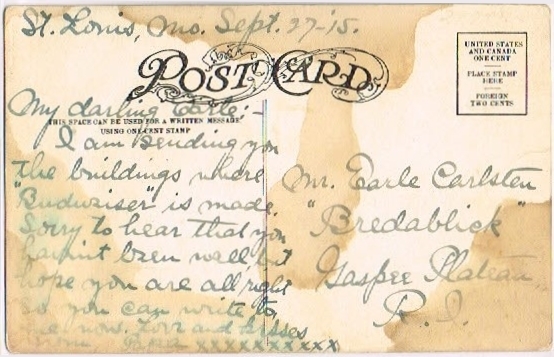 St. Louis, Mo. Sept. 27-15.
POST CARD
UNITED STATES
AND CANADA
ONE CENT
PLACE STAMP
HERE
FOREIGN
TWO CENTS
My darling Earle:-
THIS SPACE CAN BE USED FOR A WRITTEN MESSAGE
USING ONE CENT STAMP
I am sending you
the buildings where
"Budwaiser" is made
Sorry to hear that you
havn't been well, but
hope you are all right
so you can write to
me now. Love and kisses
from xxxxxxxxxx
Mr. Earle Carlsten
"Bredablick"
Gaspee Plateau
R. I.